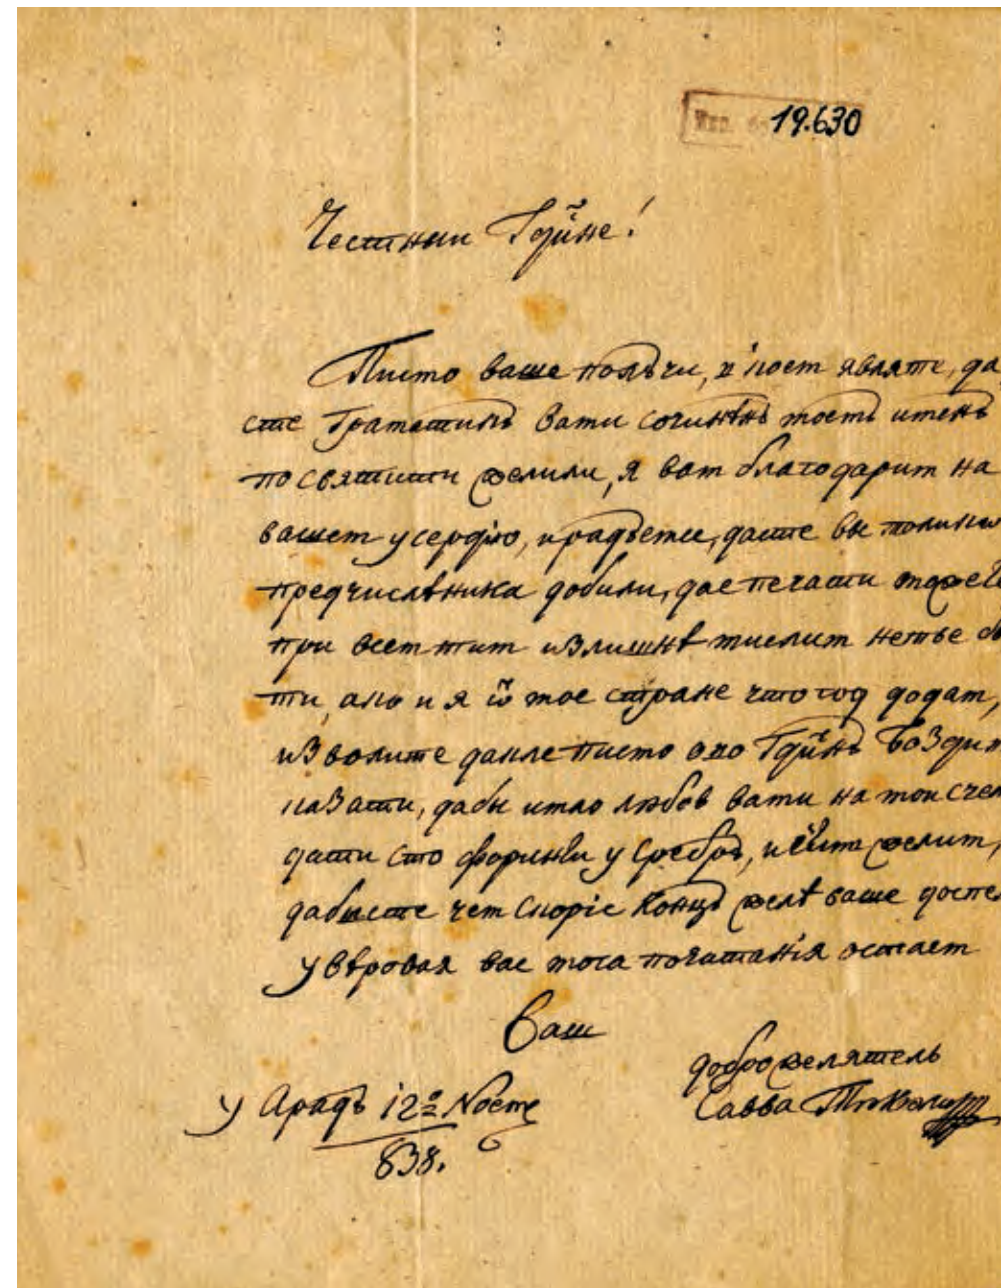 19.630
Честнии Гдⷭине!
Писмо ваше полꙋчи, у коем являте, да
сте Граматикꙋ Вами сочинѣнꙋ моемꙋ имену
посвятити желили, я вам благодарим на
вашем усердію, и радꙋемсе, да сте вы толики
предчислѣника добили, да е печатати можете
при всем тим излишнѣ мислим неће бы
ти, ако и я ѿ мое стране что год додам,
изволите дакле писмо ово Гдⷭинꙋ Воздит
казати, дабы имао любов вами на мои счет
дати сто форинти у сребрꙋ, и желим,
дабысте чем скоріе конец желѣ ваше доспе
увѣровая вас мога почитанія остаем
Ваш
доброжелятель
Савва Тюкюли
У Арадꙋ 12º Noemе
838.